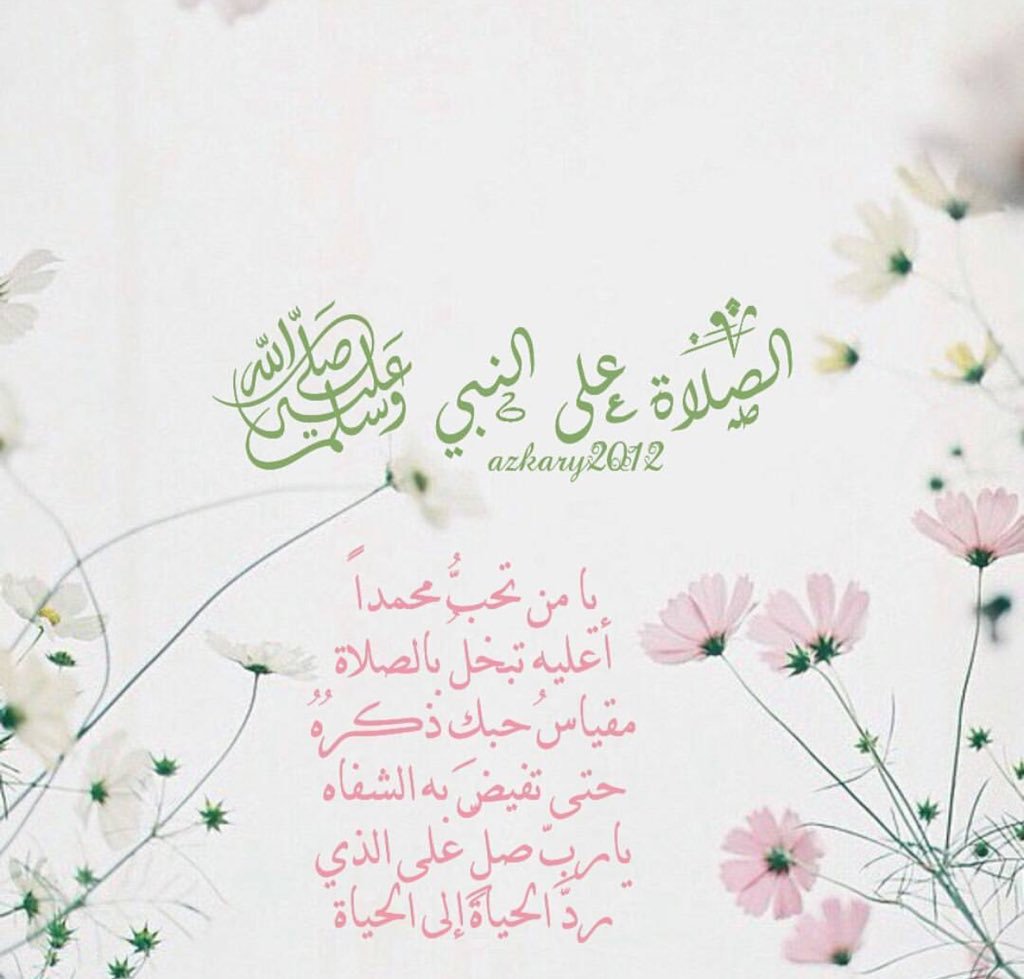 الصلاة على النبي صلى الله عليه وسلم
azkary2012
يا من تحبُّ محمداً
أعليه تبخلُ بالصلاة
مقياسُ حبك ذكرُهُ
حتى تفيضَ به الشفاه
يا ربّ صلِ على الذي
ردَّ الحياةً إلى الحياة